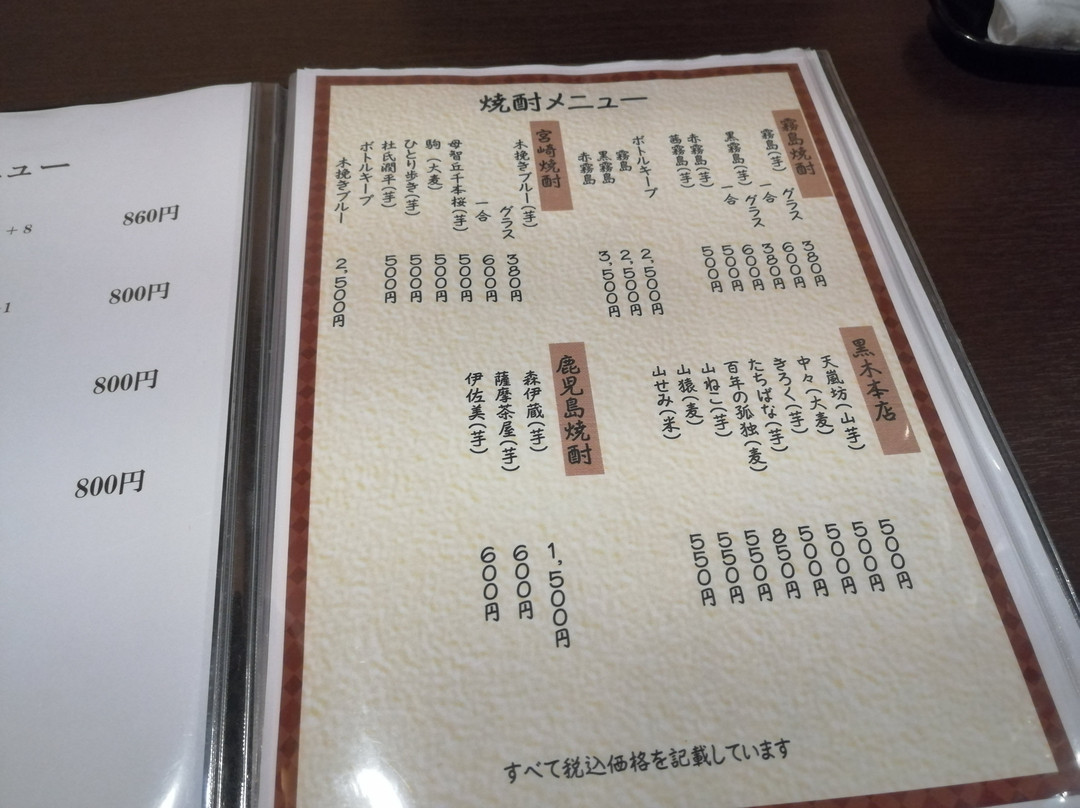 ュー
860円
+8
800円
800円
800円
焼酎メニュー
霧島焼酎
霧島(芋) グラス 380円
一合 600円
黒霧島(芋) グラス 380円
一合 600円
赤霧島(芋) 500円
茜霧島(芋) 500円
ボトルキープ
霧島 2,500円
黒霧島 2,500円
赤霧島 3,500円
宮崎焼酎
木挽きブルー(芋) グラス 380円
一合 600円
母智丘千本桜(芋) 500円
駒(大麦) 500円
ひとり歩き(芋) 500円
杜氏潤平(芋) 500円
ボトルキープ
木挽きブルー 2,500円
黒木本店
天嵐坊(山芋) 500円
中々(大麦) 500円
きろく(芋) 500円
たちばな(芋) 500円
百年の孤独(麦) 850円
山ねこ(芋) 550円
山猿(麦) 550円
山せみ(米) 550円
鹿児島焼酎
森伊蔵(芋) 1,500円
薩摩茶屋(芋) 600円
伊佐美(芋) 600円
すべて税込価格を記載しています